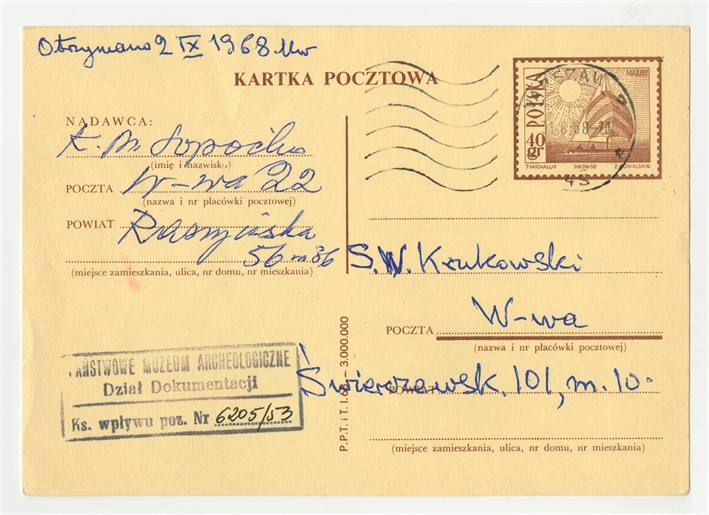 Otrzymano 2 IX 1968
KARTKA POCZTOWA
POLSKA
40 gr
MAZURY
T. MICHALUK PWPW-66 Z. KOWALSKI
NADAWCA:
(imię i nazwisko)
POCZTA W-wa 22
(nazwa i nr placówki pocztowej)
POWIAT Raszyńska
56 m. 36
(miejsce zamieszkania, ulica, nr domu, nr mieszkania)
S. W. Krukowski
W-wa
POCZTA
(nazwa i nr placówki pocztowej)
Świerczewsk. 101, m. 10.
POWIAT
(miejsce zamieszkania, ulica, nr domu, nr mieszkania)
PAŃSTWOWE MUZEUM ARCHEOLOGICZNE
Dział Dokumentacji
Ks. wpływu poz. Nr 6205/53
P.P.T. i T. I. 68 – 3.000.000